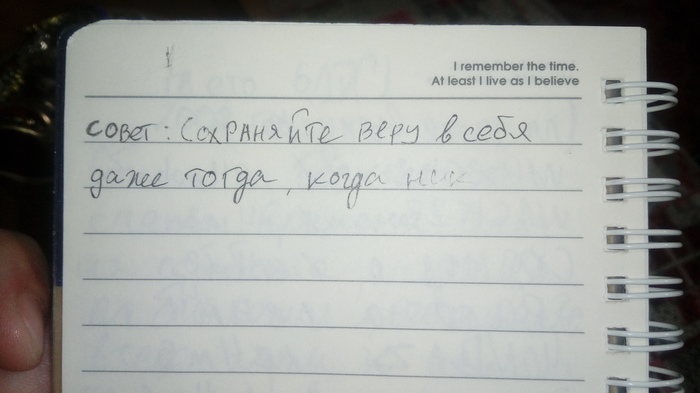 I remember the time.
At least I live as I believe
совет: Сохраняйте веру в себя
даже тогда, когда ник